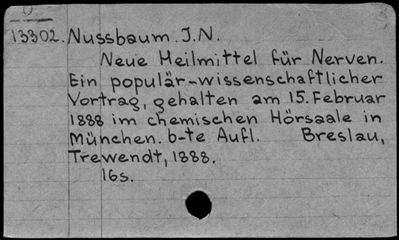 13302. Nussbaum. J.N.
Neue Heilmittel für Nerven.
Ein populär-wissenschaftlicher
Vortrag, gehalten am 15. Februar
1888 im chemischen Hörsaale in
München. b-te Aufl. Breslau,
Trewendt, 1888.
16s.